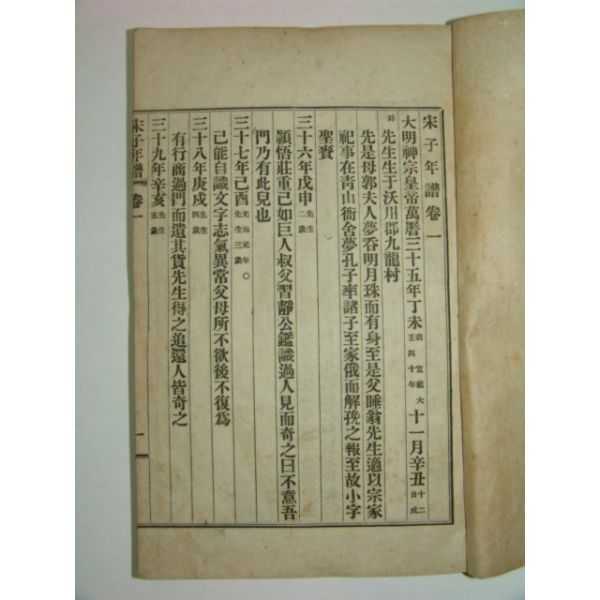 宋子年譜卷一
大明神宗皇帝萬曆三十五年丁未我宣祖大王四十年十一月辛丑十二日戌
時先生生于沃川郡九龍村
先是母郭夫人夢吞明月珠而有身至是父睡翁先生適以宗家
祀事在靑山衙舍夢孔子率諸子至家俄而解娩之報至故小字
聖賚
三十六年戊申先生二歲
穎悟莊重已如巨人叔父習靜公鑑識過人見而奇之曰不意吾
門乃有此兒也
三十七年己酉光海元年○先生三歲
已能自識文字志氣異常父母所不欲後不復爲
三十八年庚戌先生四歲
有行商過門而遺其貨先生得之追還人皆奇之
三十九年辛亥先生五歲
宋子年譜 卷一
一